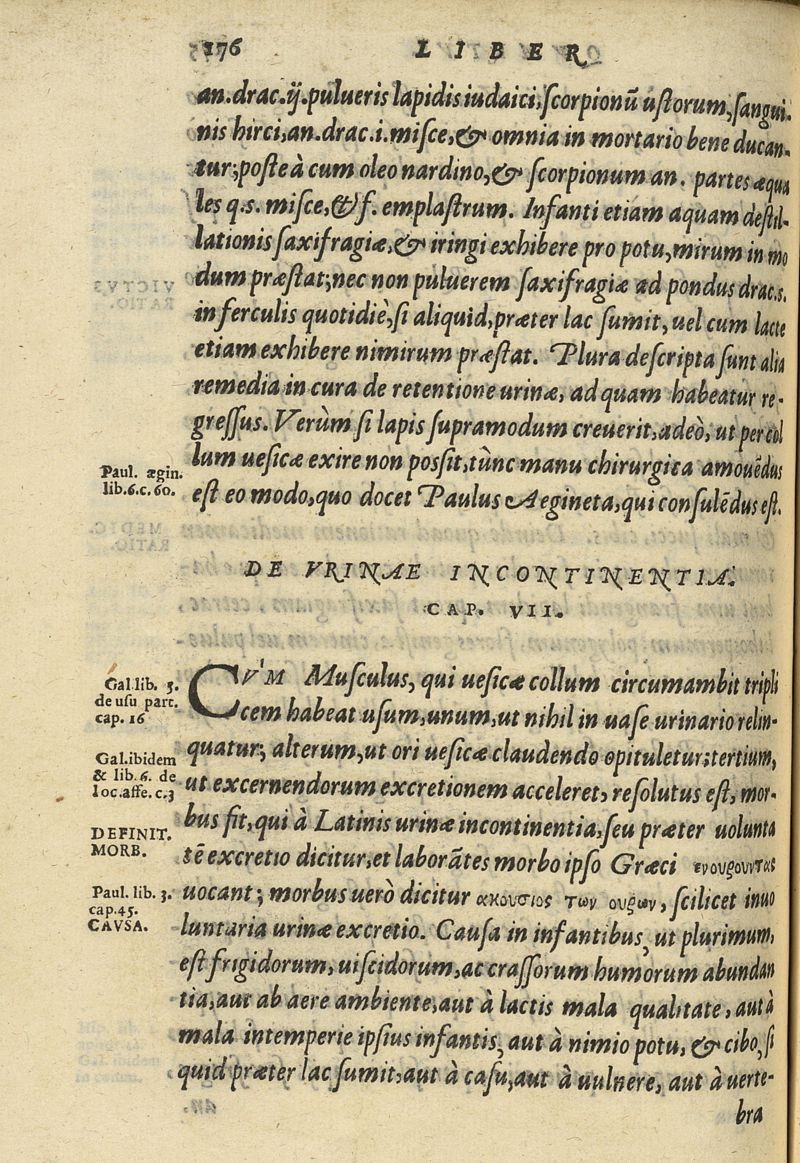 176 LIBER
an.drac.ij.pulueris lapidis iudaici,ſcorpionũ uſtorum,ſangui-
nis hirci,an.drac.i.miſce,& omnia in mortario bene ducan-
tur;poſteà cum oleo nardino,& ſcorpionum an. partes æqua
les q.s. miſce,& f. emplaſtrum. Infanti etiam aquam deſtil-
lationis ſaxifragiæ,& iringi exhibere pro potu,mirum in mo
dum præſtat;nec non puluerem ſaxifragiæ ad pondus drac.s.
in ferculis quotidiè,ſi aliquid,præter lac ſumit,uel cum lacte
etiam exhibere nimirum præſtat. Plura deſcripta ſunt alia
remedia in cura de retentione urinæ, ad quam habeatur re-
greſſus. Verùm ſi lapis ſupramodum creuerit,adeò, ut per col
lum ueſicæ exire non poſſit,tùnc manu chirurgica amouẽdus
Paul. ægin.
lib.6.c.60.
eſt eo modo,quo docet Paulus Aegineta,qui conſulẽdus eſt.
DE VRINAE INCONTINENTIA.
CAP. VII.
Gal.lib. 5.
de uſu part.
cap. 16
CVM Muſculus, qui ueſicæ collum circumambit tripli
cem habeat uſum,unum,ut nihil in uaſe urinario relin-
Gal.ibidem
& lib.6. de
loc.affe.c.3
quatur; alterum,ut ori ueſicæ claudendo opituletur;tertium,
ut excernendorum excretionem acceleret, reſolutus eſt, mor-
DEFINIT.
MORB.
bus fit,qui à Latinis urinæ incontinentia,ſeu præter uolunta
tẽ excretio dicitur,et laborãtes morbo ipſo Græci ενουρουντας
Paul. lib. 3.
cap.45.
CAVSA.
uocant; morbus uerò dicitur ακουσιος των ουρων, ſcilicet inuo
luntaria urinæ excretio. Cauſa in infantibus, ut plurimum,
eſt frigidorum, uiſcidorum, ac craſſorum humorum abundan
tia,aut ab aere ambiente,aut à lactis mala qualitate, aut à
mala intemperie ipſius infantis, aut à nimio potu, & cibo, ſi
quid præter lac ſumit,aut à caſu,aut à uulnere, aut à uerte-
bra